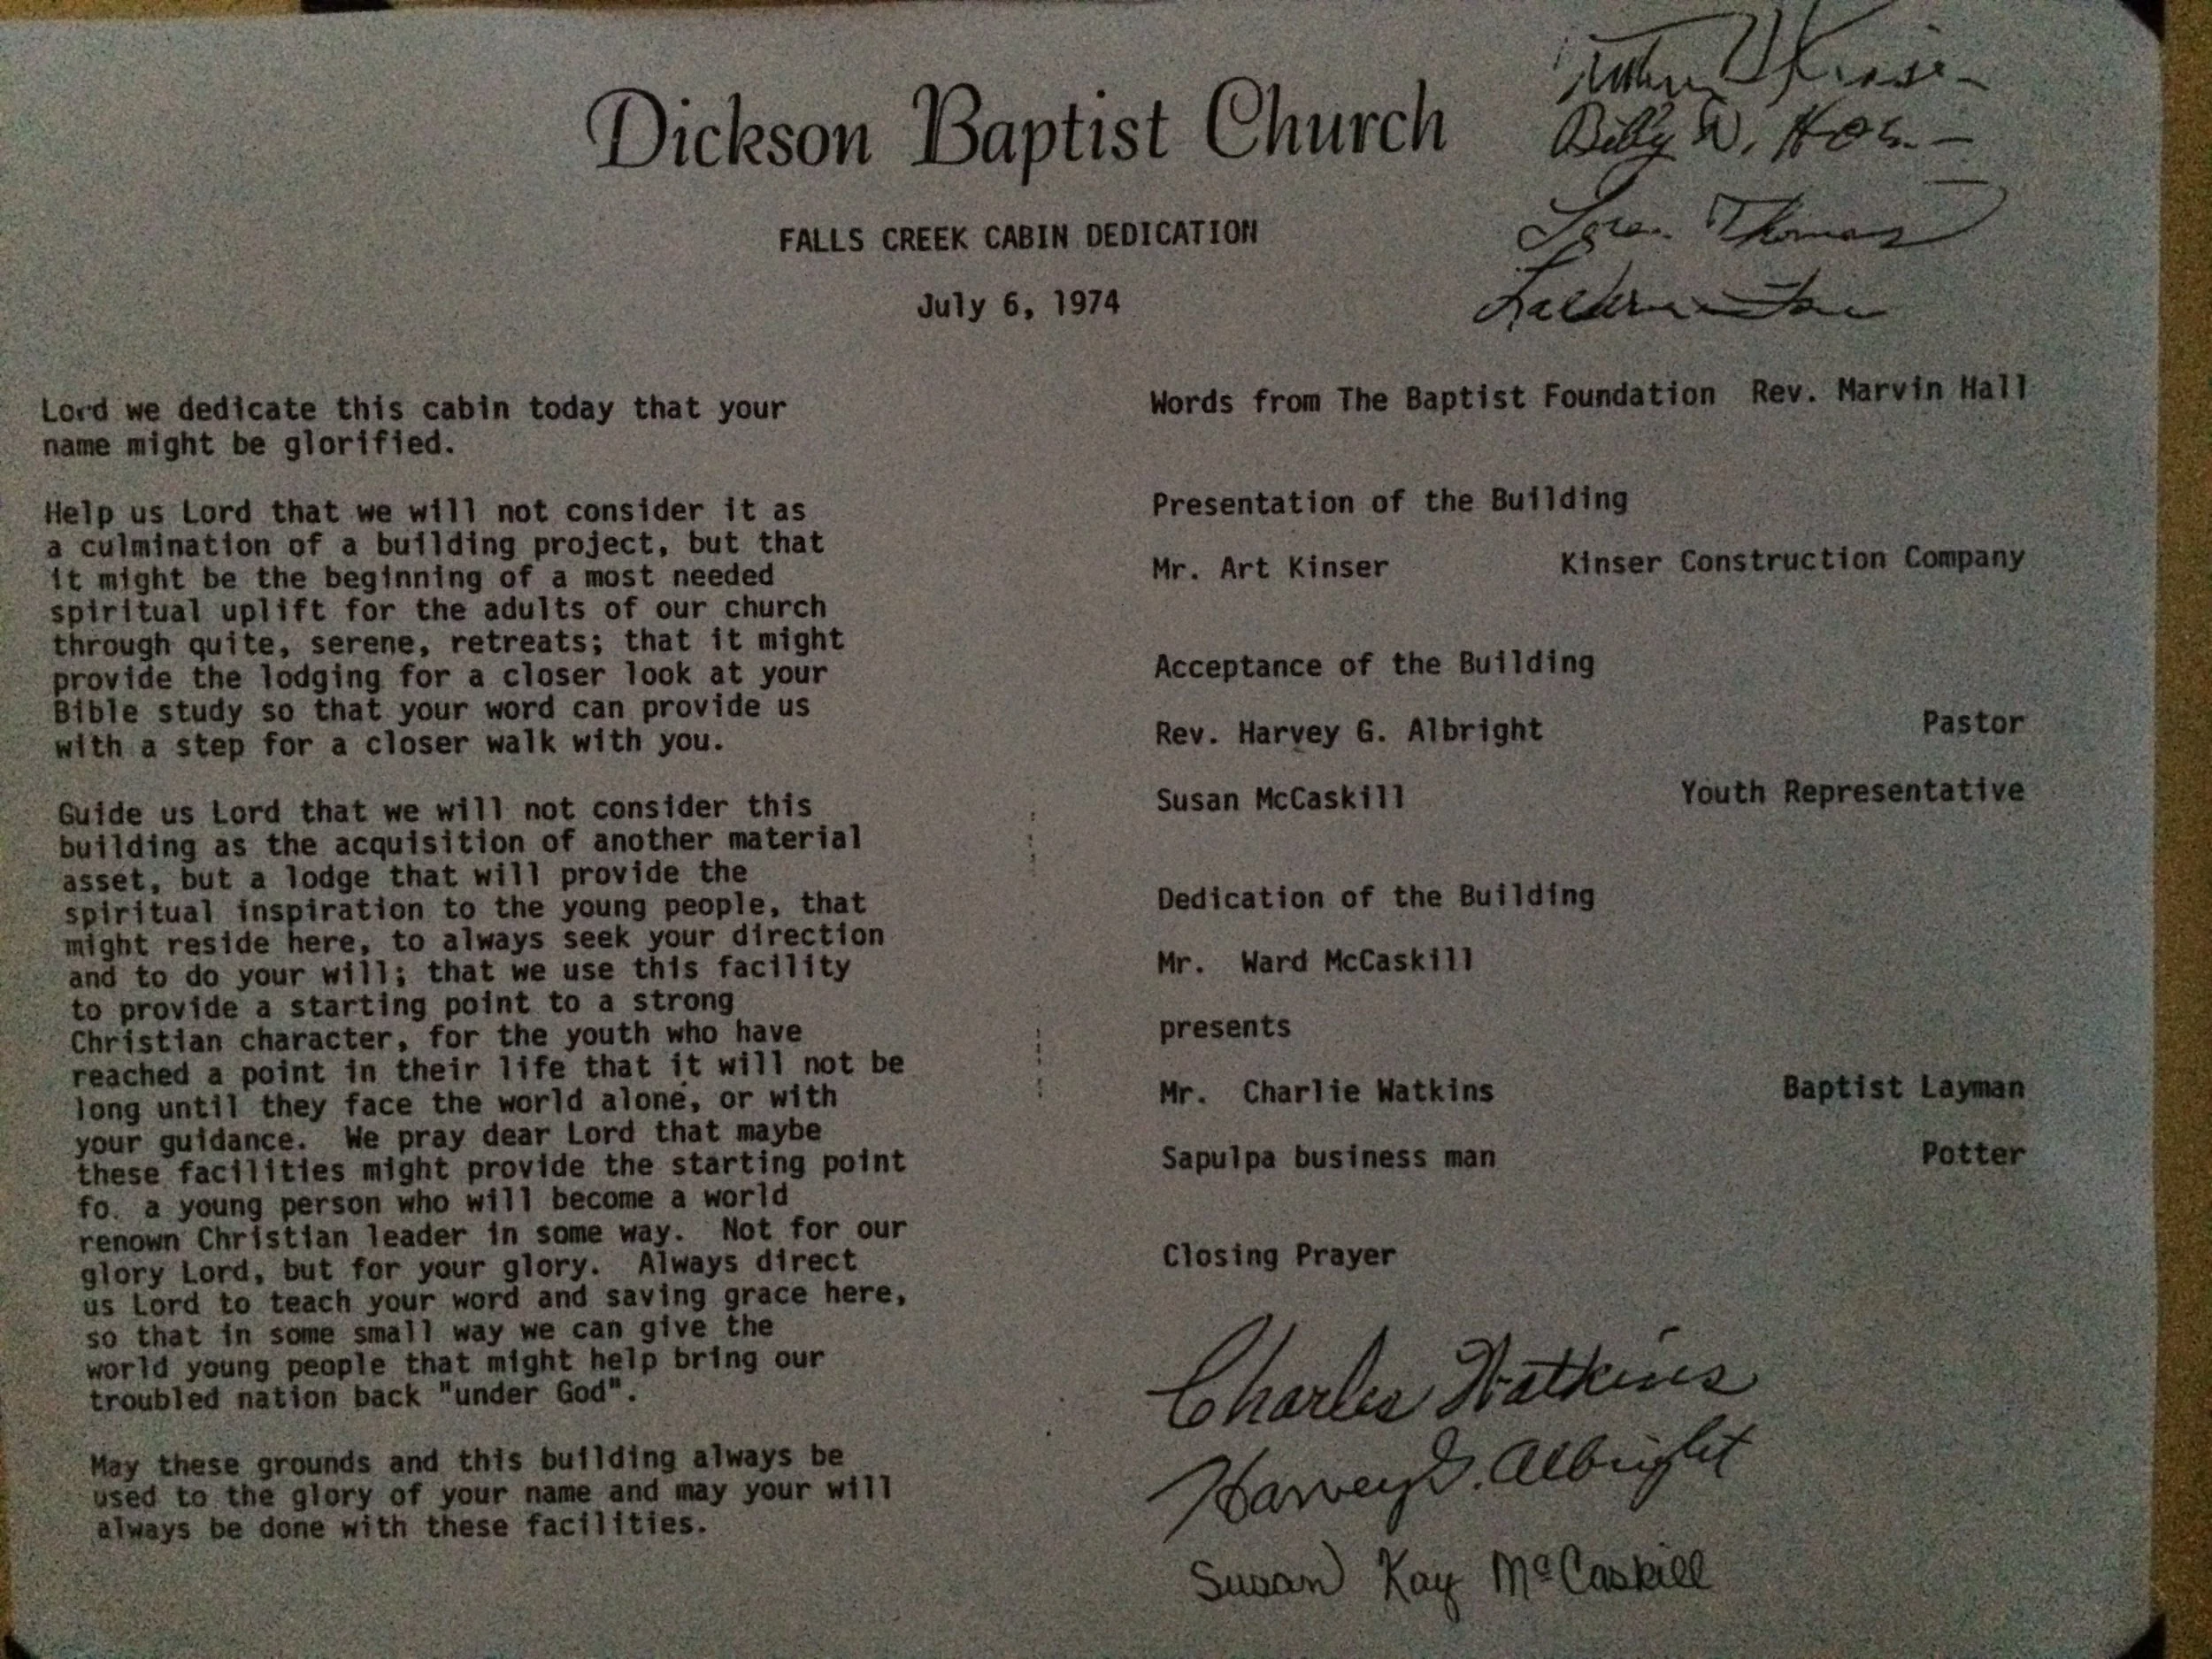 Dickson Baptist Church
FALLS CREEK CABIN DEDICATION
July 6, 1974
Billy W.
Thomas
Lord we dedicate this cabin today that your
name might be glorified.
Help us Lord that we will not consider it as
a culmination of a building project, but that
it might be the beginning of a most needed
spiritual uplift for the adults of our church
through quite, serene, retreats; that it might
provide the lodging for a closer look at your
Bible study so that your word can provide us
with a step for a closer walk with you.
Guide us Lord that we will not consider this
building as the acquisition of another material
asset, but a lodge that will provide the
spiritual inspiration to the young people, that
might reside here, to always seek your direction
and to do your will; that we use this facility
to provide a starting point to a strong
Christian character, for the youth who have
reached a point in their life that it will not be
long until they face the world alone, or with
your guidance.  We pray dear Lord that maybe
these facilities might provide the starting point
fo. a young person who will become a world
renown Christian leader in some way.  Not for our
glory Lord, but for your glory.  Always direct
us Lord to teach your word and saving grace here,
so that in some small way we can give the
world young people that might help bring our
troubled nation back "under God".
May these grounds and this building always be
used to the glory of your name and may your will
always be done with these facilities.
Words from The Baptist Foundation  Rev. Marvin Hall
Presentation of the Building
Mr. Art Kinser  Kinser Construction Company
Acceptance of the Building
Rev. Harvey G. Albright  Pastor
Susan McCaskill  Youth Representative
Dedication of the Building
Mr.  Ward McCaskill
presents
Mr.  Charlie Watkins  Baptist Layman
Sapulpa business man  Potter
Closing Prayer
Charles Watkins
Harvey G. Albright
Susan Kay McCaskill